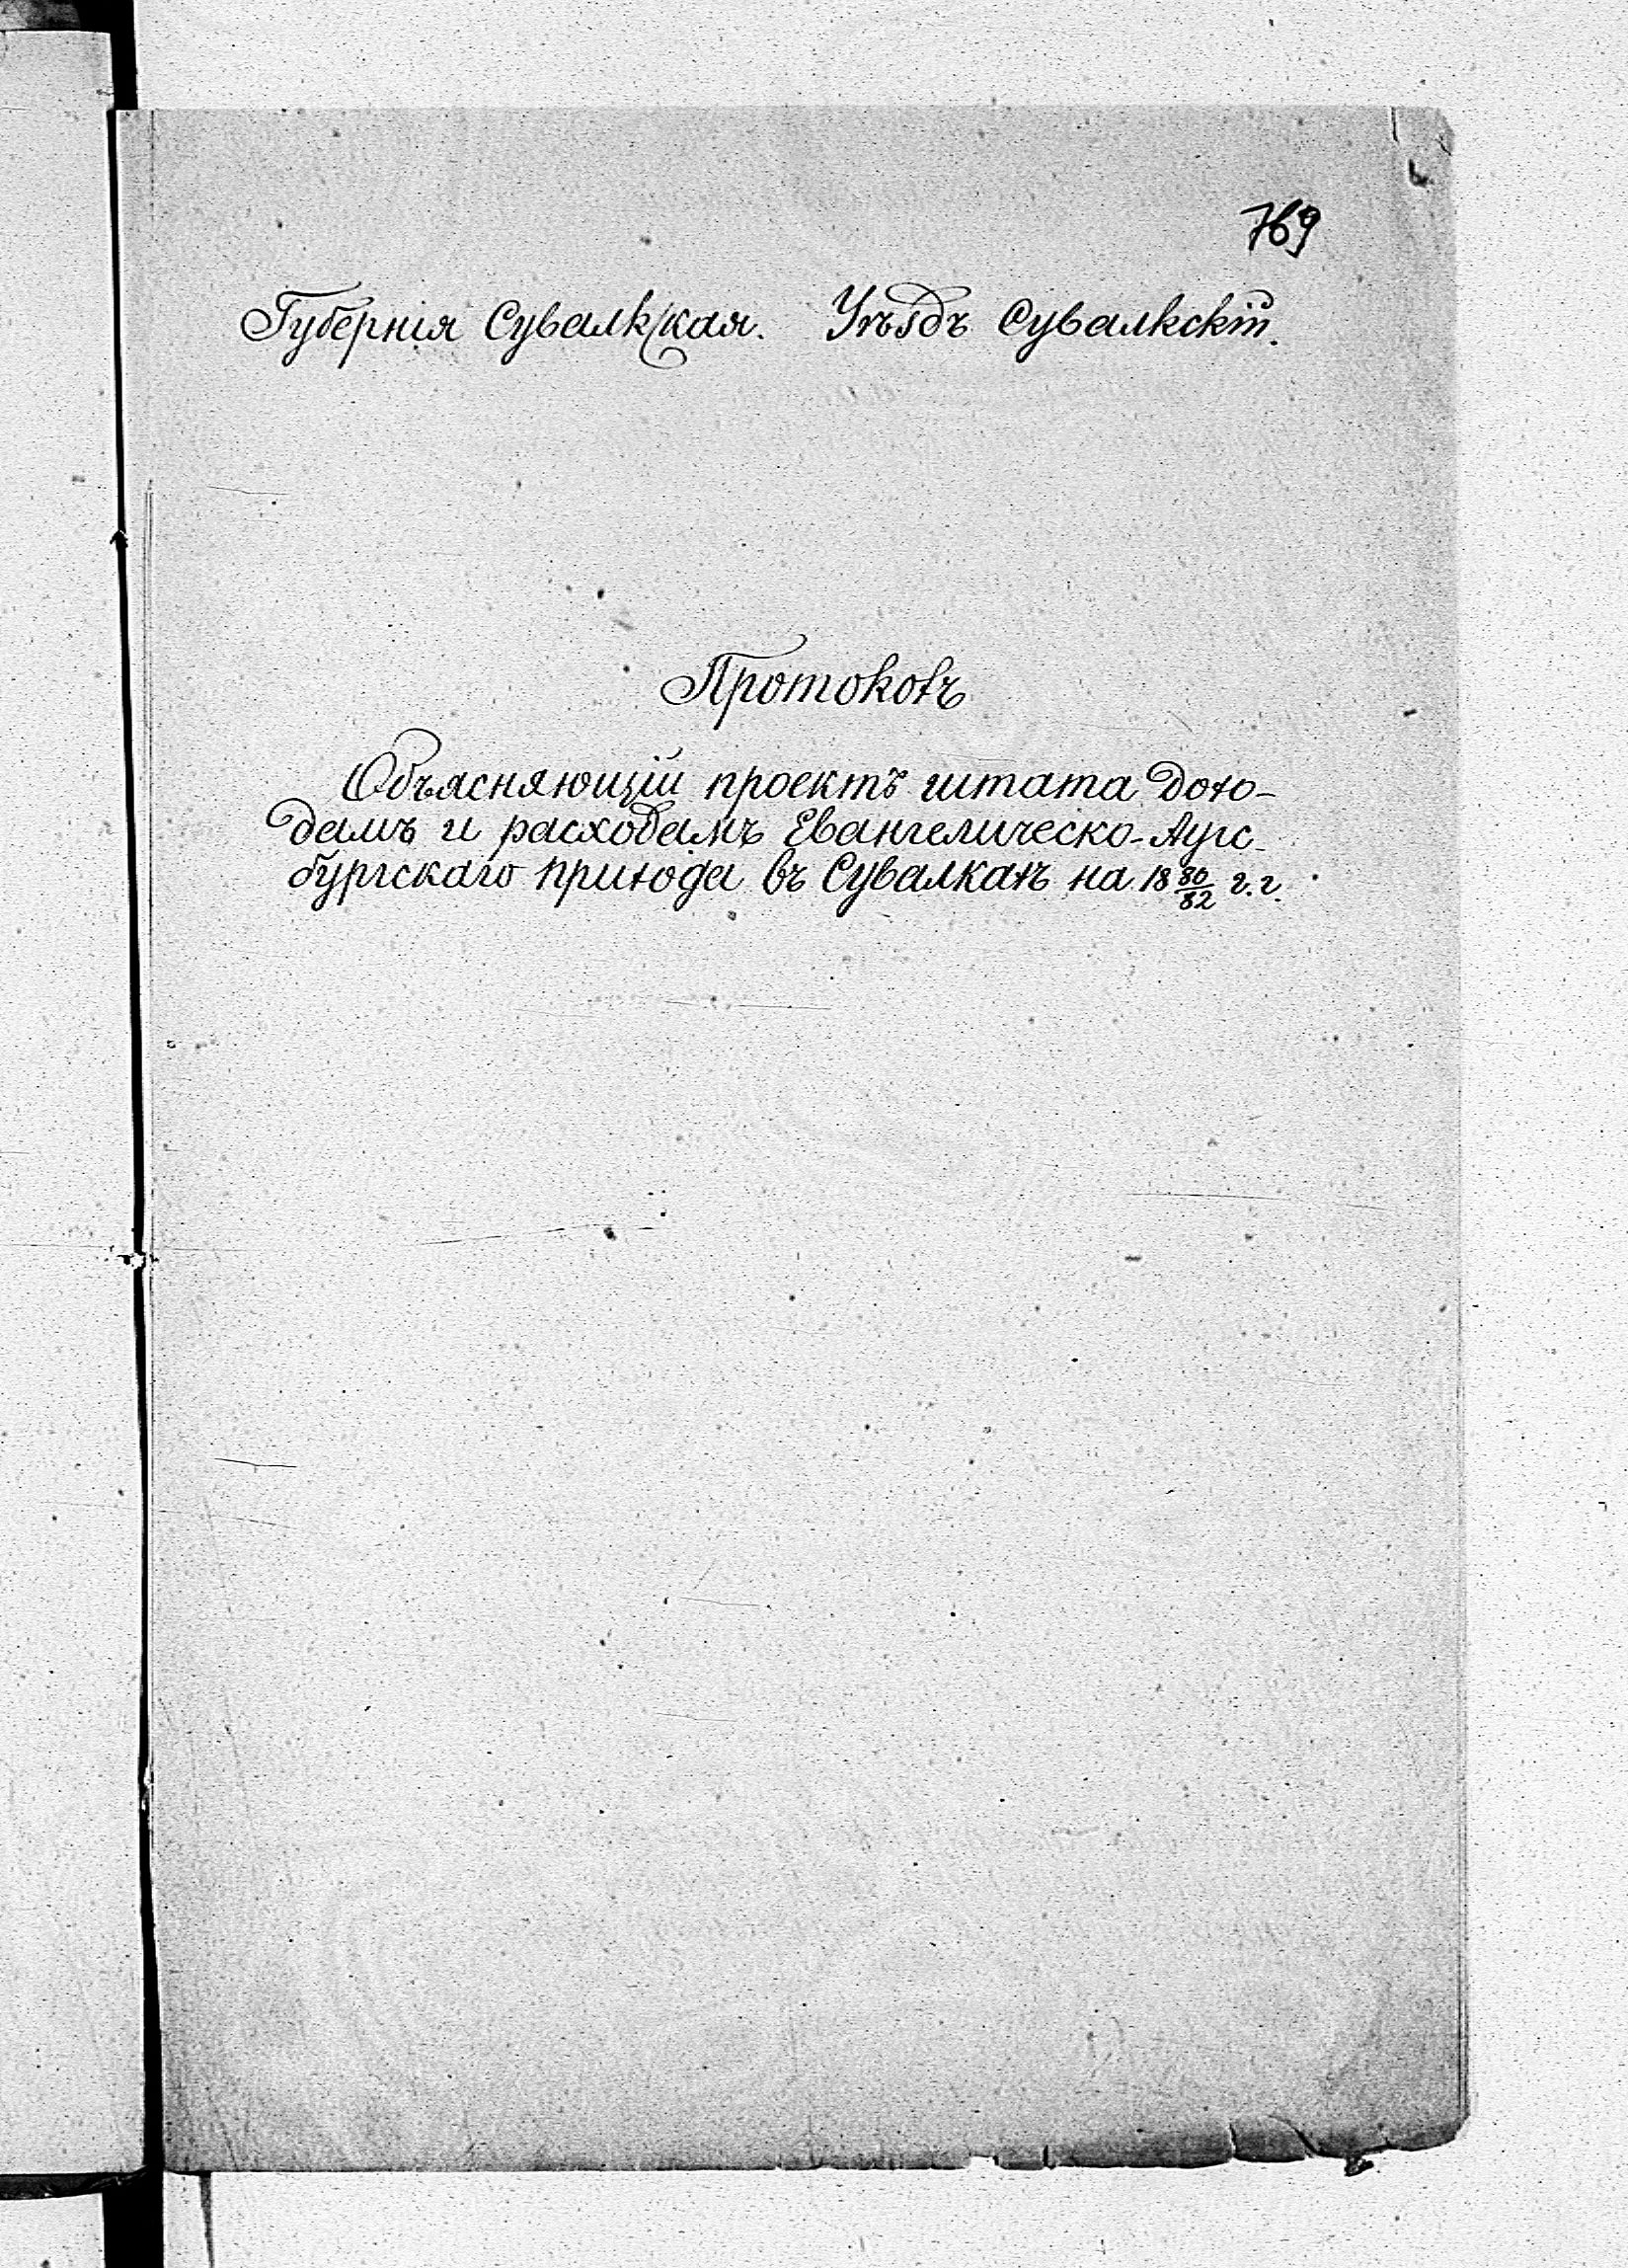 769
Губернія Сувалкская. Уѣздъ Сувалкскій.
Протоколъ
Объясняющій проектъ штата дохо-
дамъ и расходамъ Евангелическо-Аугс-
бургскаго прихода въ Сувалкахъ на 18 80/82 г.г.